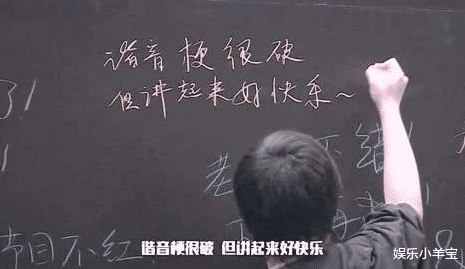 谐音梗很破
但讲起来好快乐~
31
1
老
不
错
节目不红
谐音梗很破 但讲起来好快乐
娱乐小羊宝